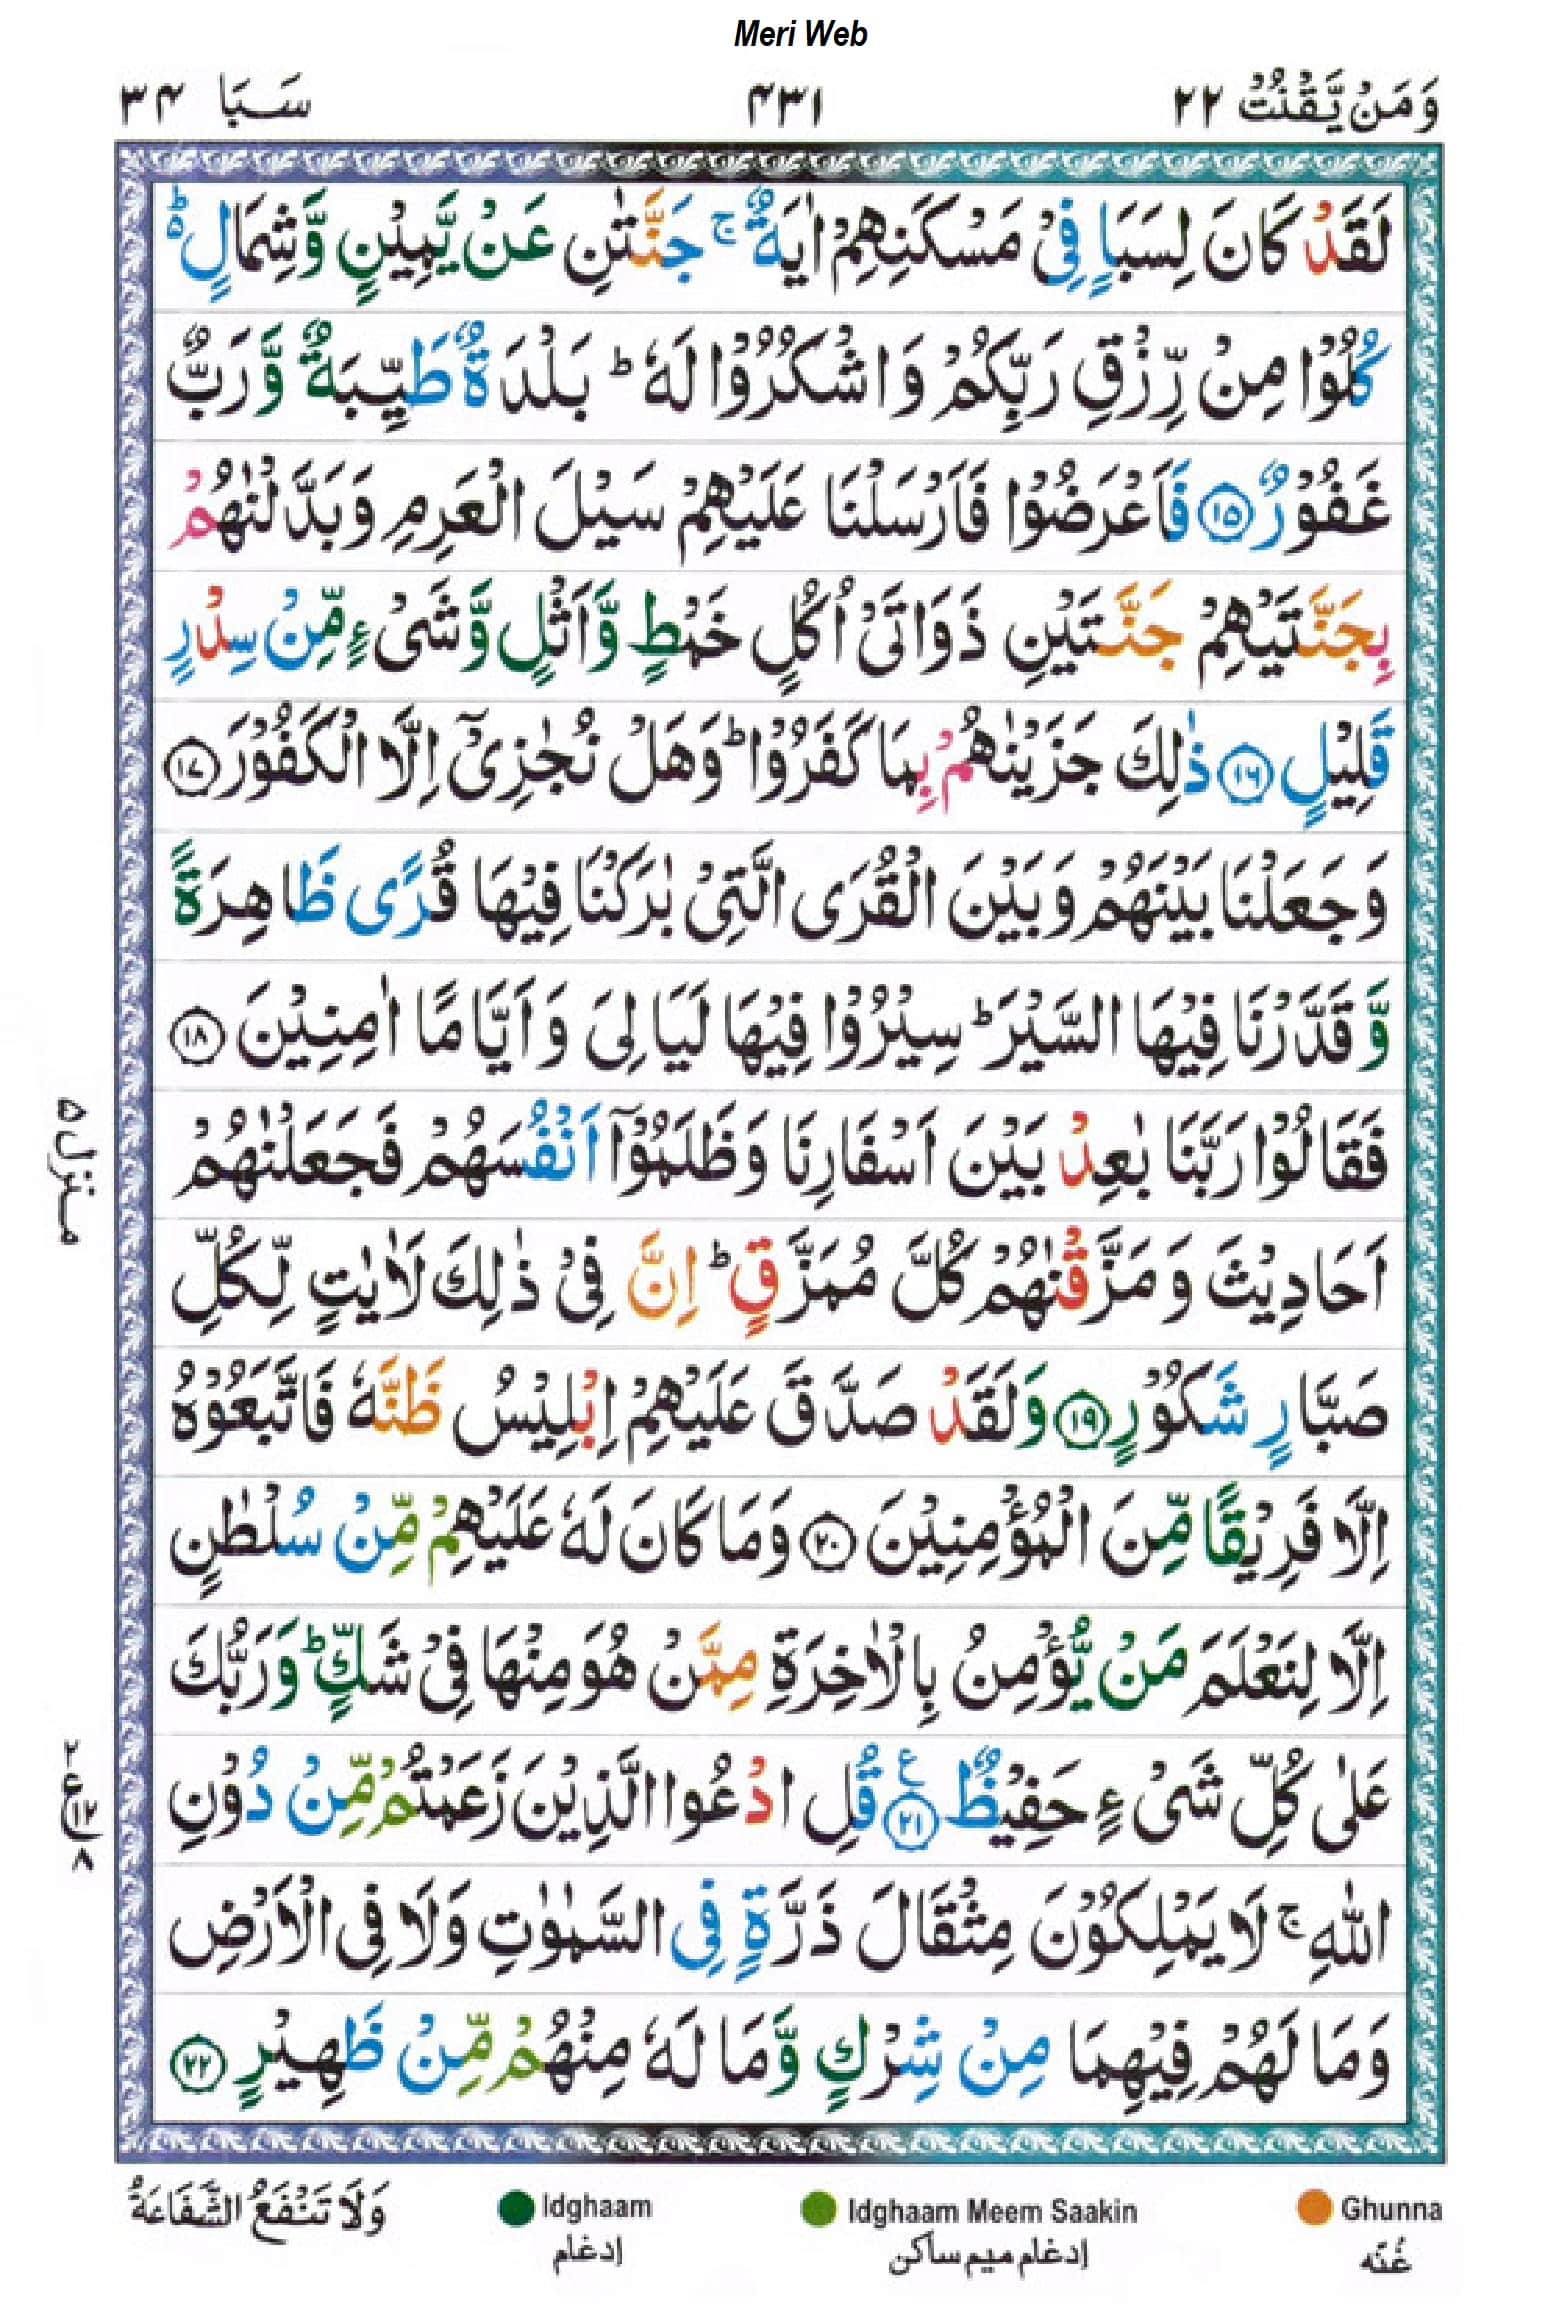 Meri Web
وَمَنْ يَّقْنُتْ ٢٢
۴۳۱
سَبَا ۳۴
لَقَدْ كَانَ لِسَبَاٍ فِيْ مَسْكَنِهِمْ اٰيَةٌ ۚ جَنَّتٰنِ عَنْ يَّمِيْنٍ وَّشِمَالٍ ؕ
كُلُوْا مِنْ رِّزْقِ رَبِّكُمْ وَاشْكُرُوْا لَهٗ ؕ بَلْدَةٌ طَيِّبَةٌ وَّرَبٌّ
غَفُوْرٌ ۝۱۵ فَاَعْرَضُوْا فَاَرْسَلْنَا عَلَيْهِمْ سَيْلَ الْعَرِمِ وَبَدَّلْنٰهُمْ
بِجَنَّتَيْهِمْ جَنَّتَيْنِ ذَوَاتَيْ اُكُلٍ خَمْطٍ وَّاَثْلٍ وَّشَيْءٍ مِّنْ سِدْرٍ
قَلِيْلٍ ۝۱۶ ذٰلِكَ جَزَيْنٰهُمْ بِمَا كَفَرُوْا ؕ وَهَلْ نُجٰزِيْٓ اِلَّا الْكَفُوْرَ ۝۱۷
وَجَعَلْنَا بَيْنَهُمْ وَبَيْنَ الْقُرَى الَّتِيْ بٰرَكْنَا فِيْهَا قُرًى ظَاهِرَةً
وَّقَدَّرْنَا فِيْهَا السَّيْرَ ؕ سِيْرُوْا فِيْهَا لَيَالِيَ وَاَيَّامًا اٰمِنِيْنَ ۝۱۸
فَقَالُوْا رَبَّنَا بٰعِدْ بَيْنَ اَسْفَارِنَا وَظَلَمُوْٓا اَنْفُسَهُمْ فَجَعَلْنٰهُمْ
اَحَادِيْثَ وَمَزَّقْنٰهُمْ كُلَّ مُمَزَّقٍ ؕ اِنَّ فِيْ ذٰلِكَ لَاٰيٰتٍ لِّكُلِّ
صَبَّارٍ شَكُوْرٍ ۝۱۹ وَلَقَدْ صَدَّقَ عَلَيْهِمْ اِبْلِيْسُ ظَنَّهٗ فَاتَّبَعُوْهُ
اِلَّا فَرِيْقًا مِّنَ الْمُؤْمِنِيْنَ ۝۲۰ وَمَا كَانَ لَهٗ عَلَيْهِمْ مِّنْ سُلْطٰنٍ
اِلَّا لِنَعْلَمَ مَنْ يُّؤْمِنُ بِالْاٰخِرَةِ مِمَّنْ هُوَ مِنْهَا فِيْ شَكٍّ ؕ وَرَبُّكَ
عَلٰى كُلِّ شَيْءٍ حَفِيْظٌ ۝۲۱ ع قُلِ ادْعُوا الَّذِيْنَ زَعَمْتُمْ مِّنْ دُوْنِ
اللّٰهِ ۚ لَا يَمْلِكُوْنَ مِثْقَالَ ذَرَّةٍ فِي السَّمٰوٰتِ وَلَا فِي الْاَرْضِ
وَمَا لَهُمْ فِيْهِمَا مِنْ شِرْكٍ وَّمَا لَهٗ مِنْهُمْ مِّنْ ظَهِيْرٍ ۝۲۲
منزل ۵
٢ ع ١٢ ٨
وَلَا تَنْفَعُ الشَّفَاعَةُ
Idghaam
ادغام
Idghaam Meem Saakin
ادغام میم ساکن
Ghunna
غُنّہ